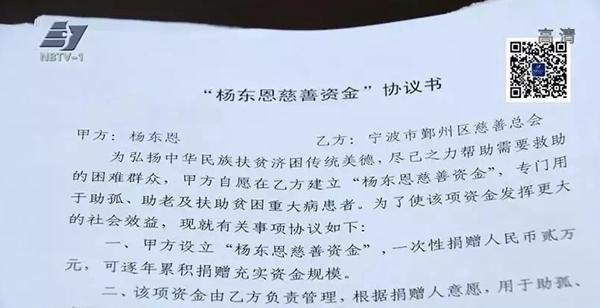 NBTV-1
高清
“杨东恩慈善资金”协议书
甲方：杨东恩 乙方：宁波市鄞州区慈善总会
为弘扬中华民族扶贫济困传统美德，尽己之力帮助需要救助
的困难群众，甲方自愿在乙方建立“杨东恩慈善资金”，专门用
于助孤、助老及扶助贫困重大病患者。为了使该项资金发挥更大
的社会效益，现就有关事项协议如下：
一、甲方设立“杨东恩慈善资金”，一次性捐赠人民币贰万
元，可逐年累积捐赠充实资金规模。
二、该项资金由乙方负责管理，根据捐赠人意愿，用于助孤、